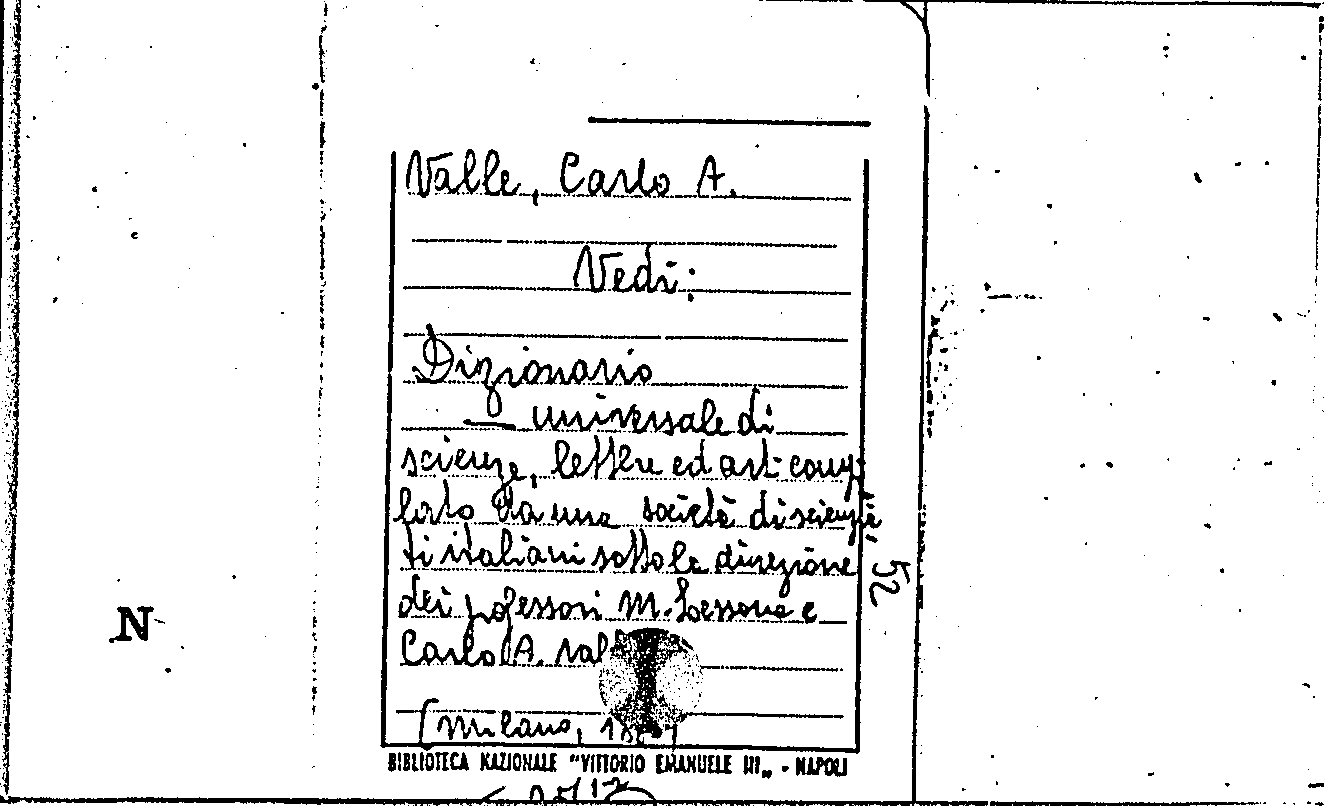 Valle, Carlo A.
Vedi:
Dizionario
— universale di
scienze, lettere ed arti comp
lato da una società di scienzia
ti italiani sotto la direzione
dei professori M. Lessona e
Carlo A. Val
(Milano,
52
N
BIBLIOTECA NAZIONALE "VITTORIO EMANUELE III„ - NAPOLI